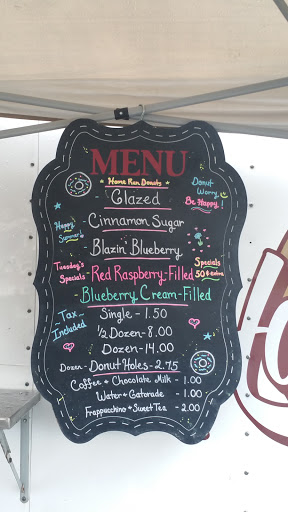 MENU
Home Run Donuts
Glazed
Donut
Worry,
Be Happy!
Cinnamon Sugar
Happy
Summer
Blazin' Blueberry
Tuesday's
Specials
-Red Raspberry-Filled
Specials
50¢ extra
-Blueberry Cream-Filled
Tax
Included
Single - 1.50
1/2 Dozen - 8.00
Dozen - 14.00
Dozen - Donut Holes - 2.75
Coffee + Chocolate Milk - 1.00
Water + Gatorade - 1.00
Frappuchino + Sweet Tea - 2.00